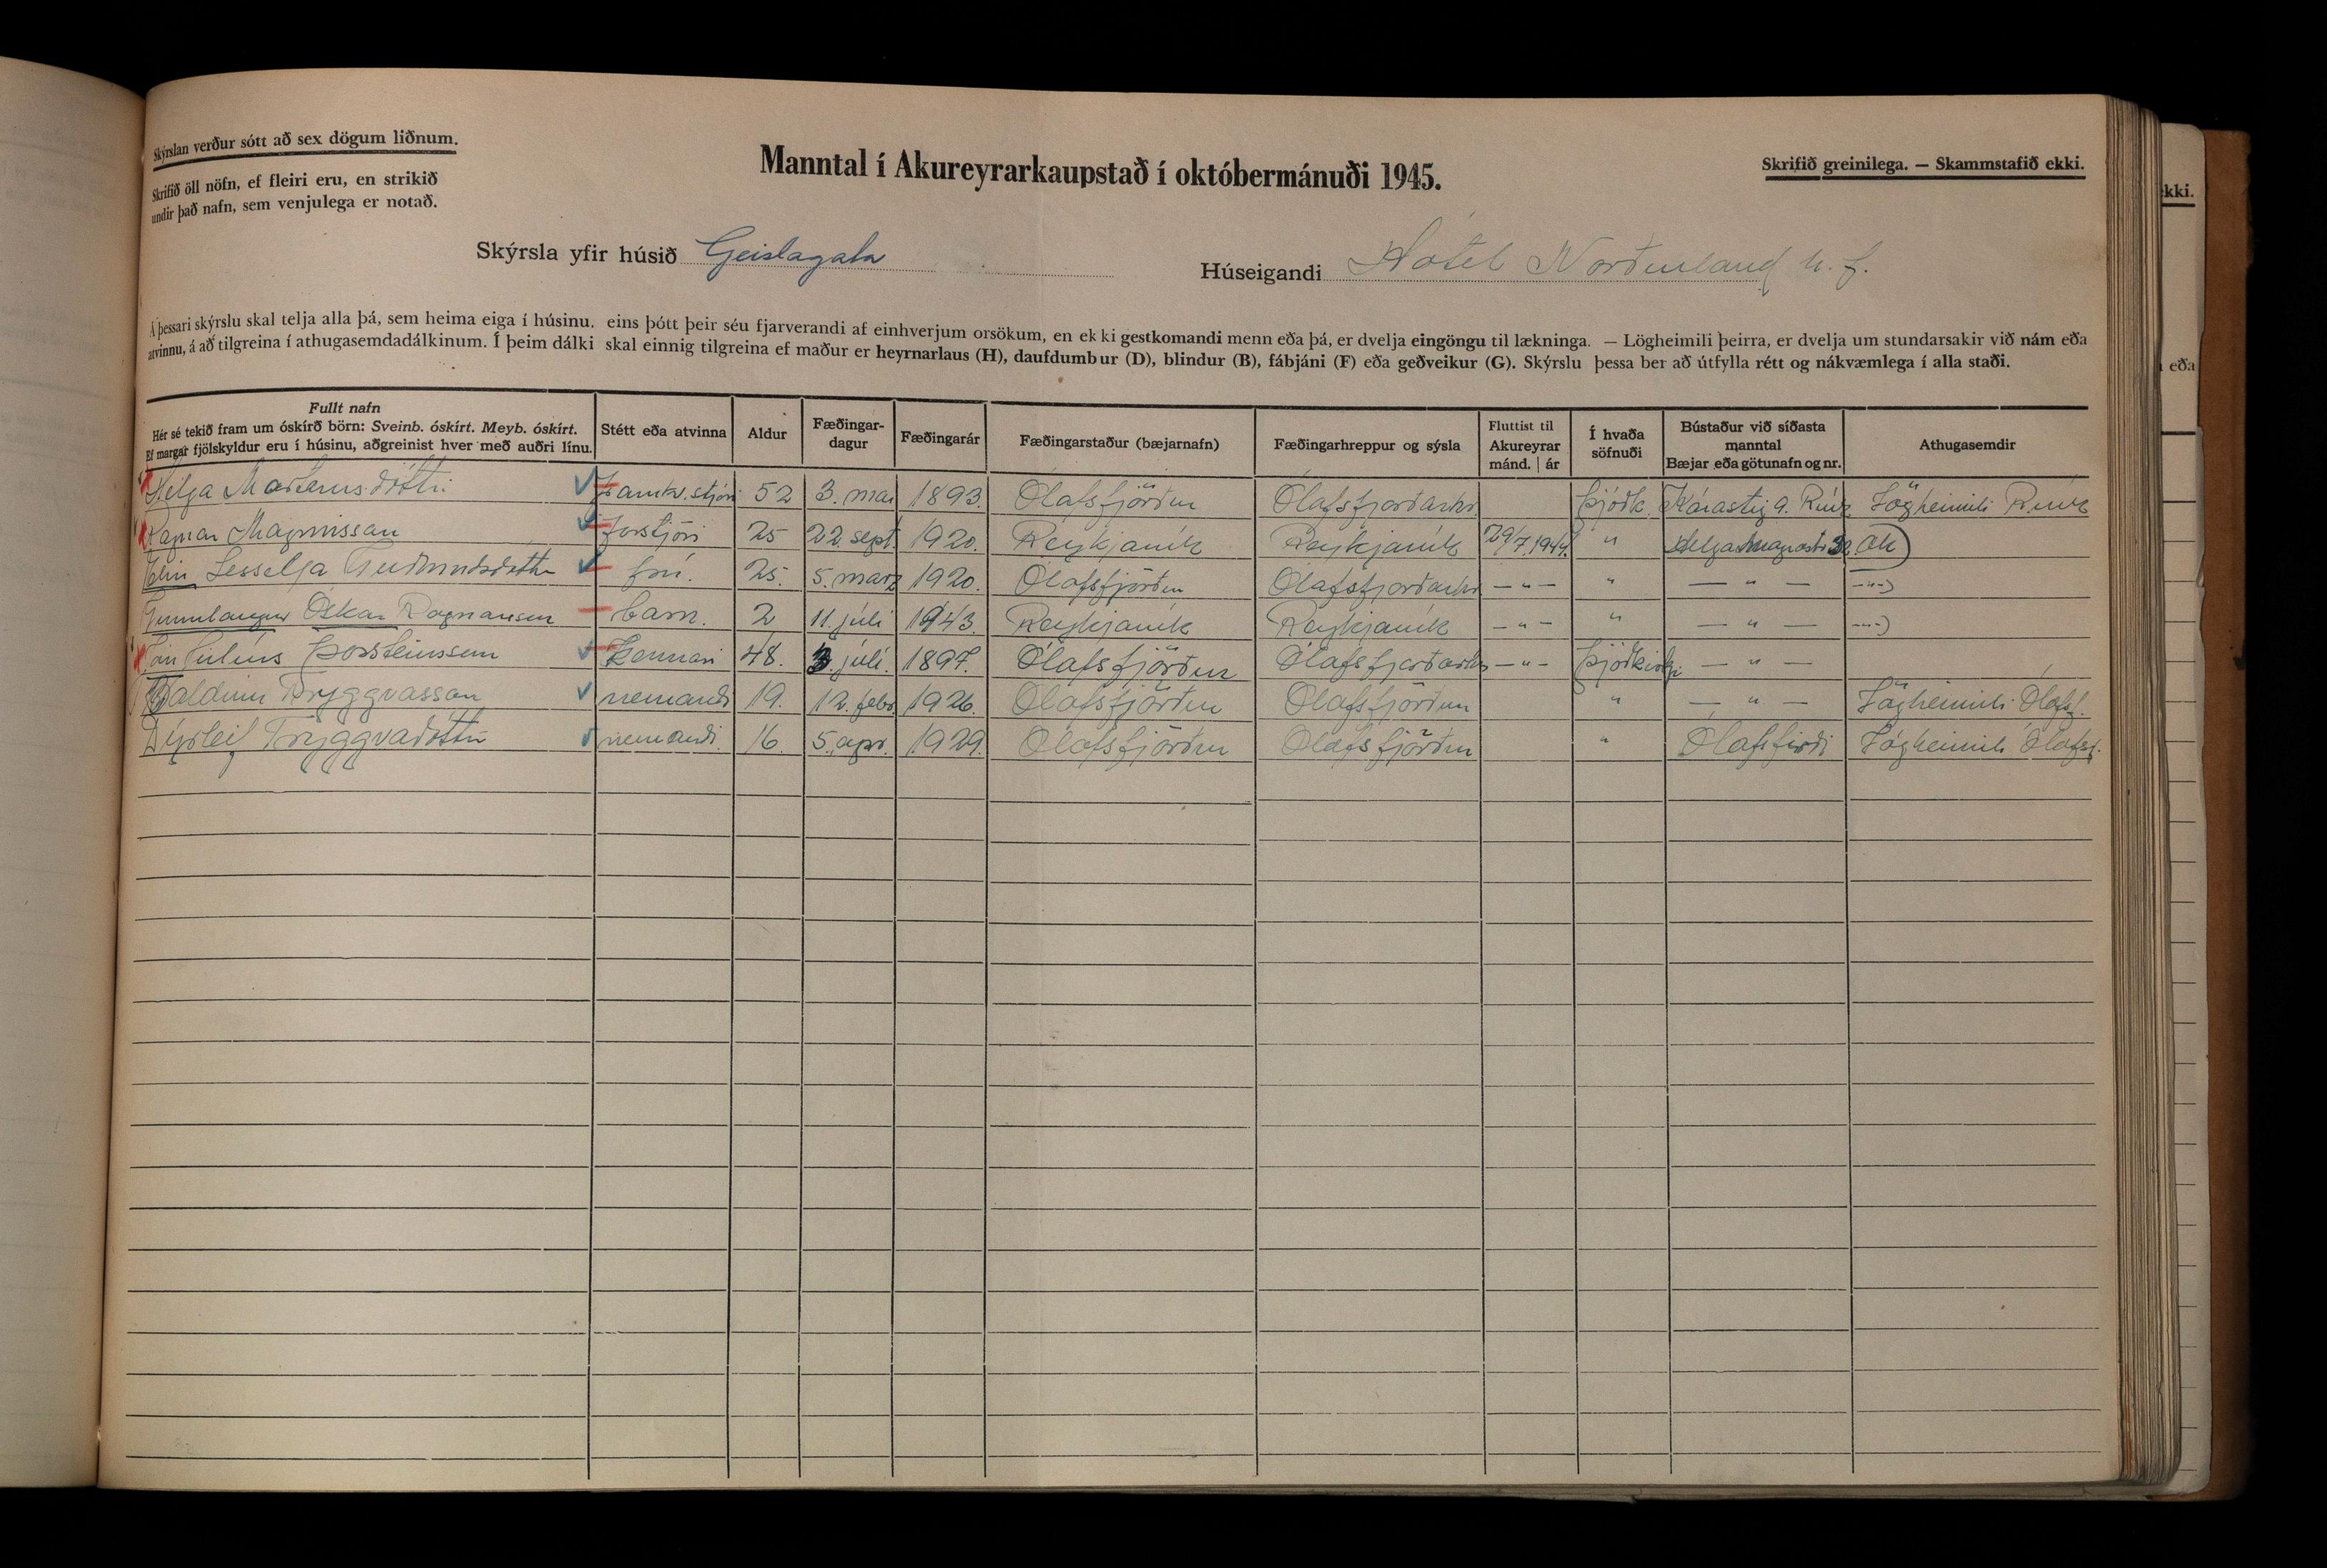 Skýrslan verður sótt að sex dögum liðnum.
Skrifið öll nöfn, ef fleiri eru, en strikið
undir það nafn, sem venjulega er notað.
Manntal í Akureyrarkaupstað í októbermánuði 1945.
Skrifið greinilega. — Skammstafið ekki.
ekki.
Skýrsla yfir húsið Geislagata
Húseigandi Hótel Norðurland h.f.
Á þessari skýrslu skal telja alla þá, sem heima eiga í húsinu, eins þótt þeir séu fjarverandi af einhverjum orsökum, en ekki gestkomandi menn eða þá, er dvelja eingöngu til lækninga. — Lögheimili þeirra, er dvelja um stundarsakir við nám eða
atvinnu, á að tilgreina í athugasemdadálkinum. Í þeim dálki skal einnig tilgreina ef maður er heyrnarlaus (H), daufdumbur (D), blindur (B), fábjáni (F) eða geðveikur (G). Skýrslu þessa ber að útfylla rétt og nákvæmlega í alla staði.
eða
Fullt nafn
Hér sé tekið fram um óskírð börn: Sveinb. óskírt. Meyb. óskírt.
Ef margar fjölskyldur eru í húsinu, aðgreinist hver með auðri línu.
Stétt eða atvinna
Aldur
Fæðingar-
dagur
Fæðingarár
Fæðingarstaður (bæjarnafn)
Fæðingarhreppur og sýsla
Fluttist til
Akureyrar
mánd. | ár
Í hvaða
söfnuði
Bústaður við síðasta
manntal
Bæjar eða götunafn og nr.
Athugasemdir
Helga Marteinsdóttir framkv.stjóri 52 3. mai 1893. Ólafsfjörður Ólafsfjarðarhr. Þjóðk. Kárastíg 9. Rvík Lögheimili Rvík
Ragnar Magnússon forstjóri 25 22. sept. 1920. Reykjavík Reykjavík 29/7.1944. " Helgamagrastr. Ak)
Elín Sesselja Guðmundsdóttir frú. 25. 5. marz 1920. Ólafsfjörður Ólafsfjarðarhr — " — " — " — —"—)
Gunnlaugur Óskar Ragnarsson barn. 2 11. júlí 1943. Reykjavík Reykjavík — " — " — " — —"—)
Jón Júlíus Þorsteinsson Kennari 48. 3 júlí. 1897. Ólafsfjörður Ólafsfjarðarhr — " — Þjóðkirkj. — " —
Baldvin Tryggvasson nemandi 19. 12. febr. 1926. Ólafsfjörður Ólafsfjörður " — " — Lögheimili Ólafsf.
Dýrleif Tryggvadóttir nemandi. 16. 5. apr. 1929. Ólafsfjörður Ólafsfjörður " Ólafsfirði Lögheimili Ólafsf.